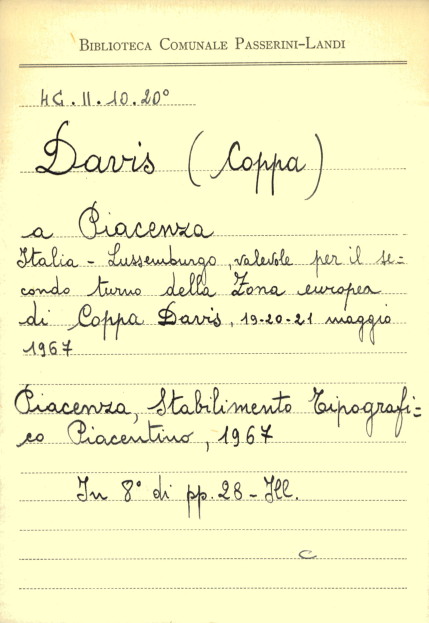 BIBLIOTECA COMUNALE PASSERINI-LANDI
4G.II.10.20°
Davis (Coppa)
a Piacenza
Italia - Lussemburgo, valevole per il se=
condo turno della Zona europea
di Coppa Davis, 19-20-21 maggio
1967
Piacenza, Stabilimento Tipografi=
co Piacentino, 1967
In 8° di pp. 28 - Ill.
C